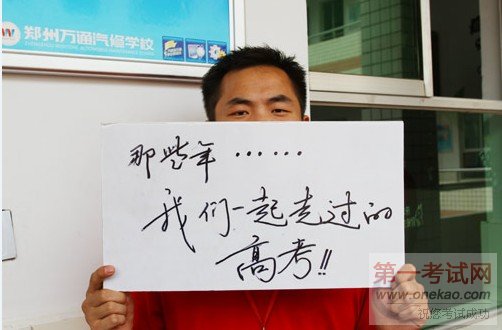 郑州万通汽修学校
那些年……
我们一起走过的
高考!!
第一考试网
www.onekao.com
祝您考试成功